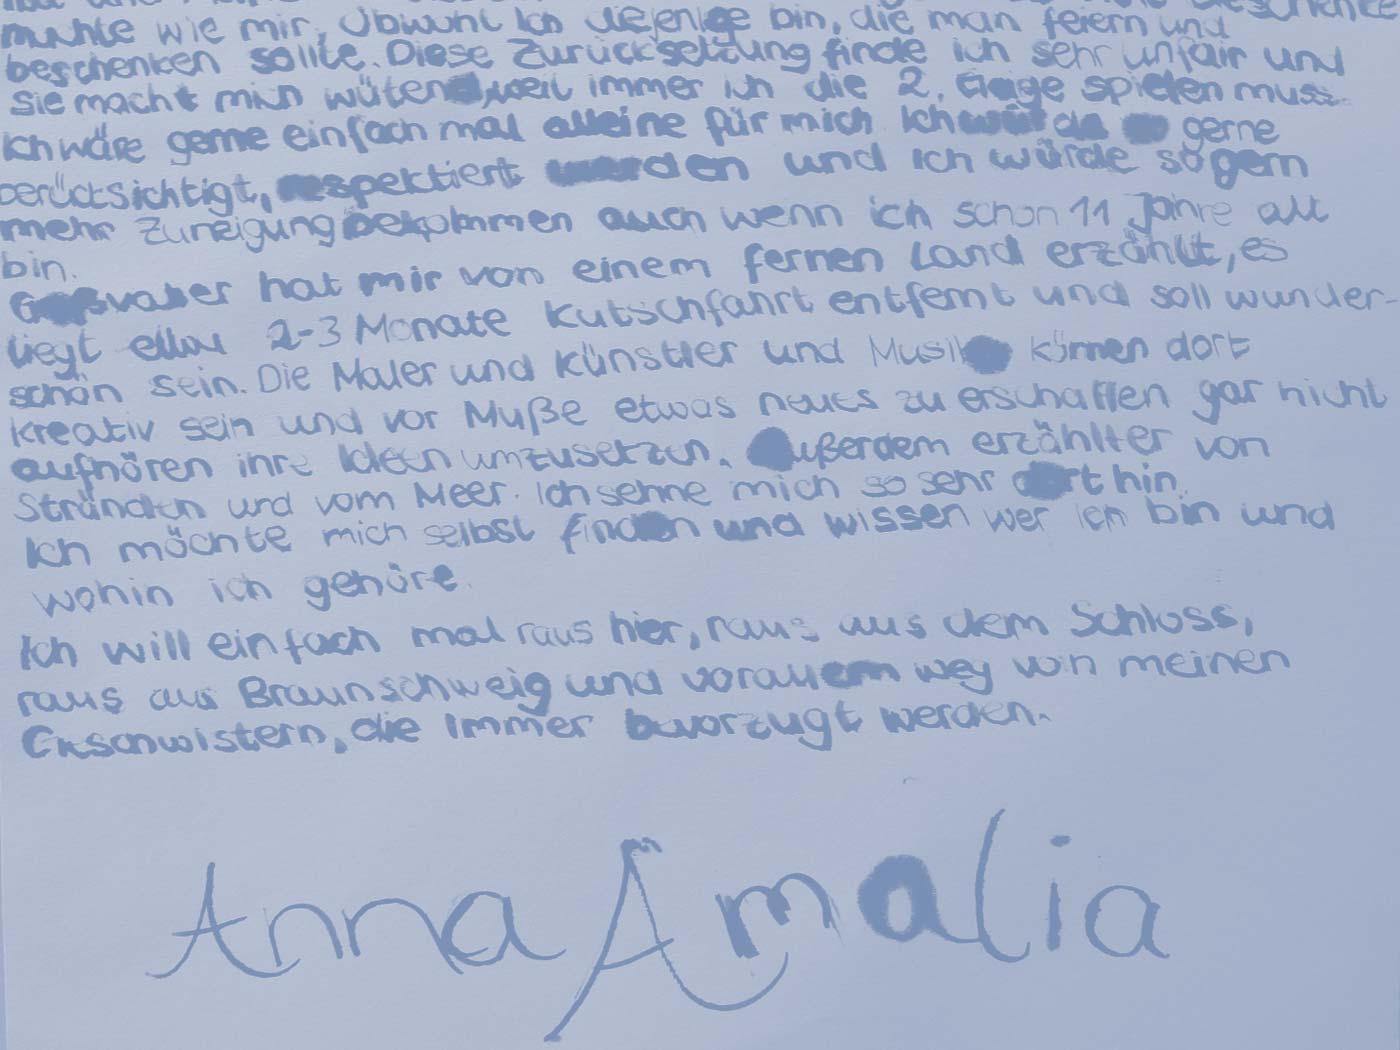 machte wie mir, Obwohl Ich diejenige bin, die man feiern und
beschenken sollte. Diese Zurücksetzung finde ich sehr unfair und
sie macht mich wütend, weil immer ich die 2. Geige spielen muss.
Ich wäre gerne einfach mal alleine für mich Ich würde so gerne
berücksichtigt, respektiert werden und ich würde so gern
mehr Zuneigung bekommen auch wenn ich schon 11 Jahre alt
bin.
Großvater hat mir von einem fernen Land erzählt, es
liegt etwa 2-3 Monate Kutschfahrt entfernt und soll wunder-
schön sein. Die Maler und Künstler und Musiker können dort
kreativ sein und vor Muße etwas neues zu erschaffen gar nicht
aufhören ihre Ideen umzusetzen. Außerdem erzählter von
Stränden und vom Meer. Ich sehne mich so sehr dort hin.
Ich möchte mich selbst finden und wissen wer ich bin und
wohin ich gehöre.
Ich will einfach mal raus hier, raus aus dem Schloss,
raus aus Braunschweig und vorallem weg von meinen
Geschwistern, die immer bevorzugt werden.
Anna Amalia